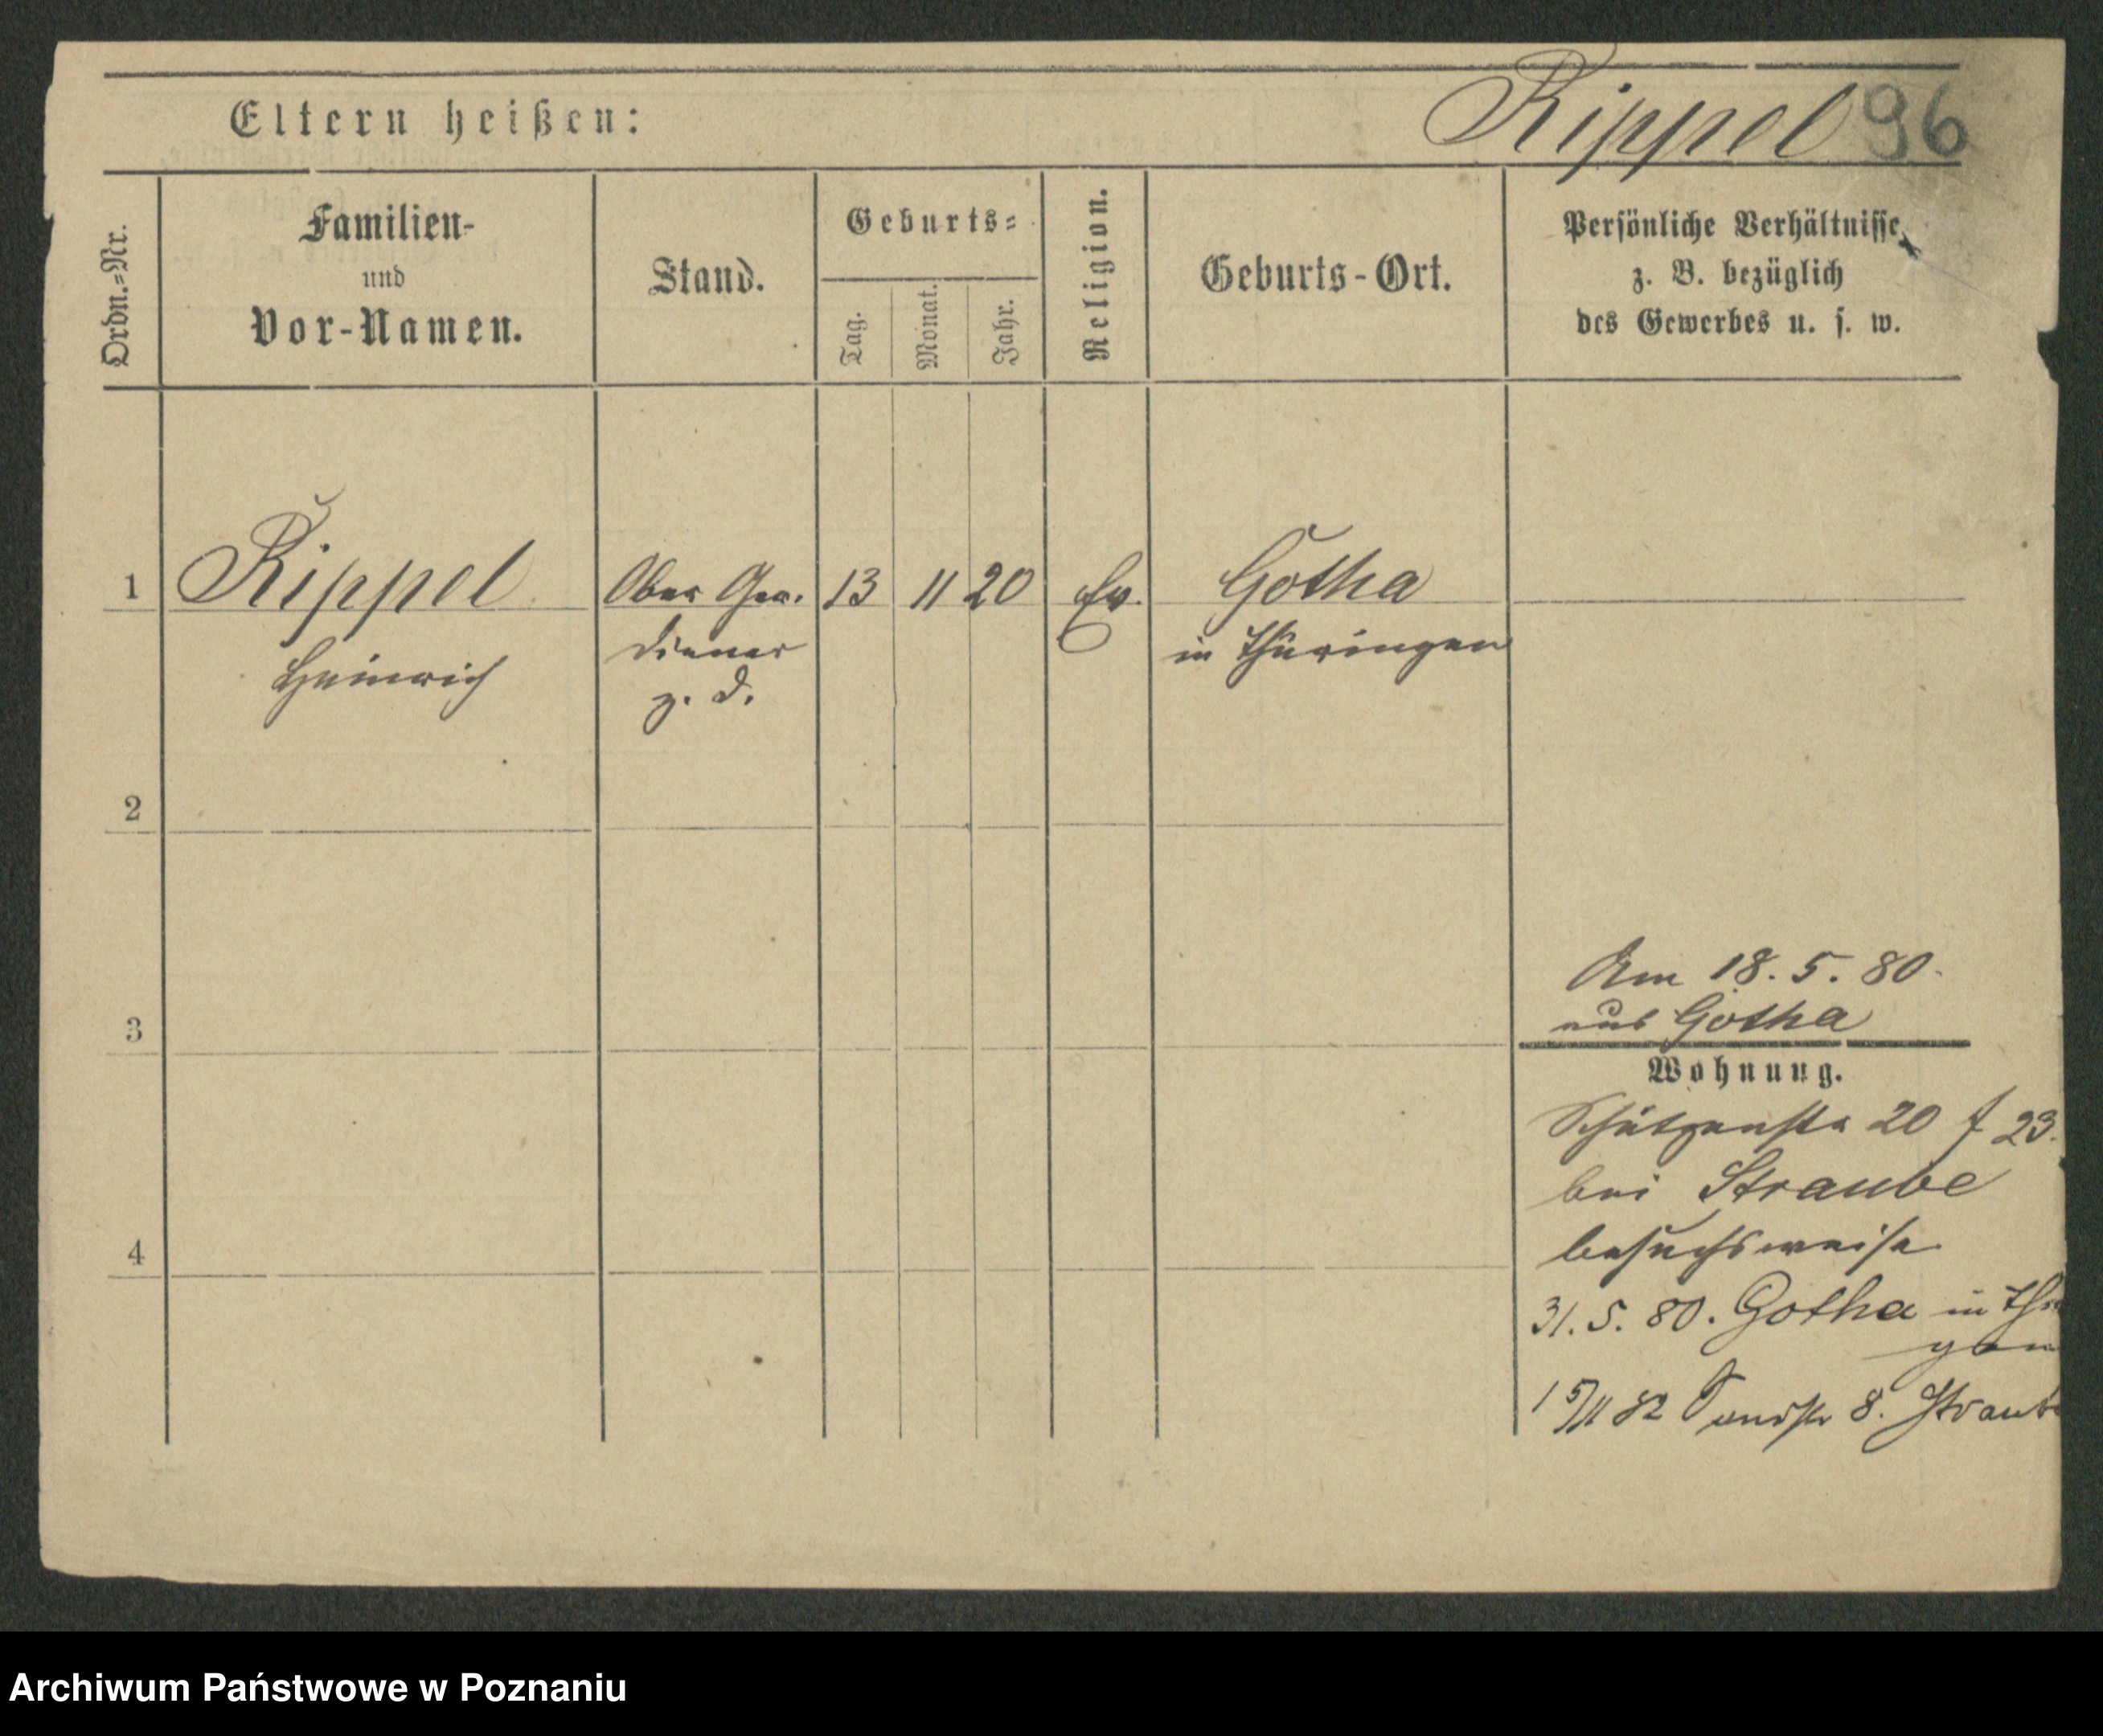 Eltern heißen:
Rippel 96
Ordn.=Nr.
Familien-
und
Vor-Namen.
Stand.
Geburts=
Tag.
Monat.
Jahr.
Religion.
Geburts-Ort.
Persönliche Verhältnisse,
z. B. bezüglich
des Gewerbes u. s. w.
1 Rippel Ober Ger. 13 11 20 Ev. Gotha
Heinrich diener in Thüringen
z. D.
2
Am 18. 5. 80.
3 aus Gotha
Wohnung.
Schützenstr 20 23.
bei Straube
besuchsweise
4
31. 5. 80. Gotha in Thü
gen
15/11 82 8. Straube
Archiwum Państwowe w Poznaniu